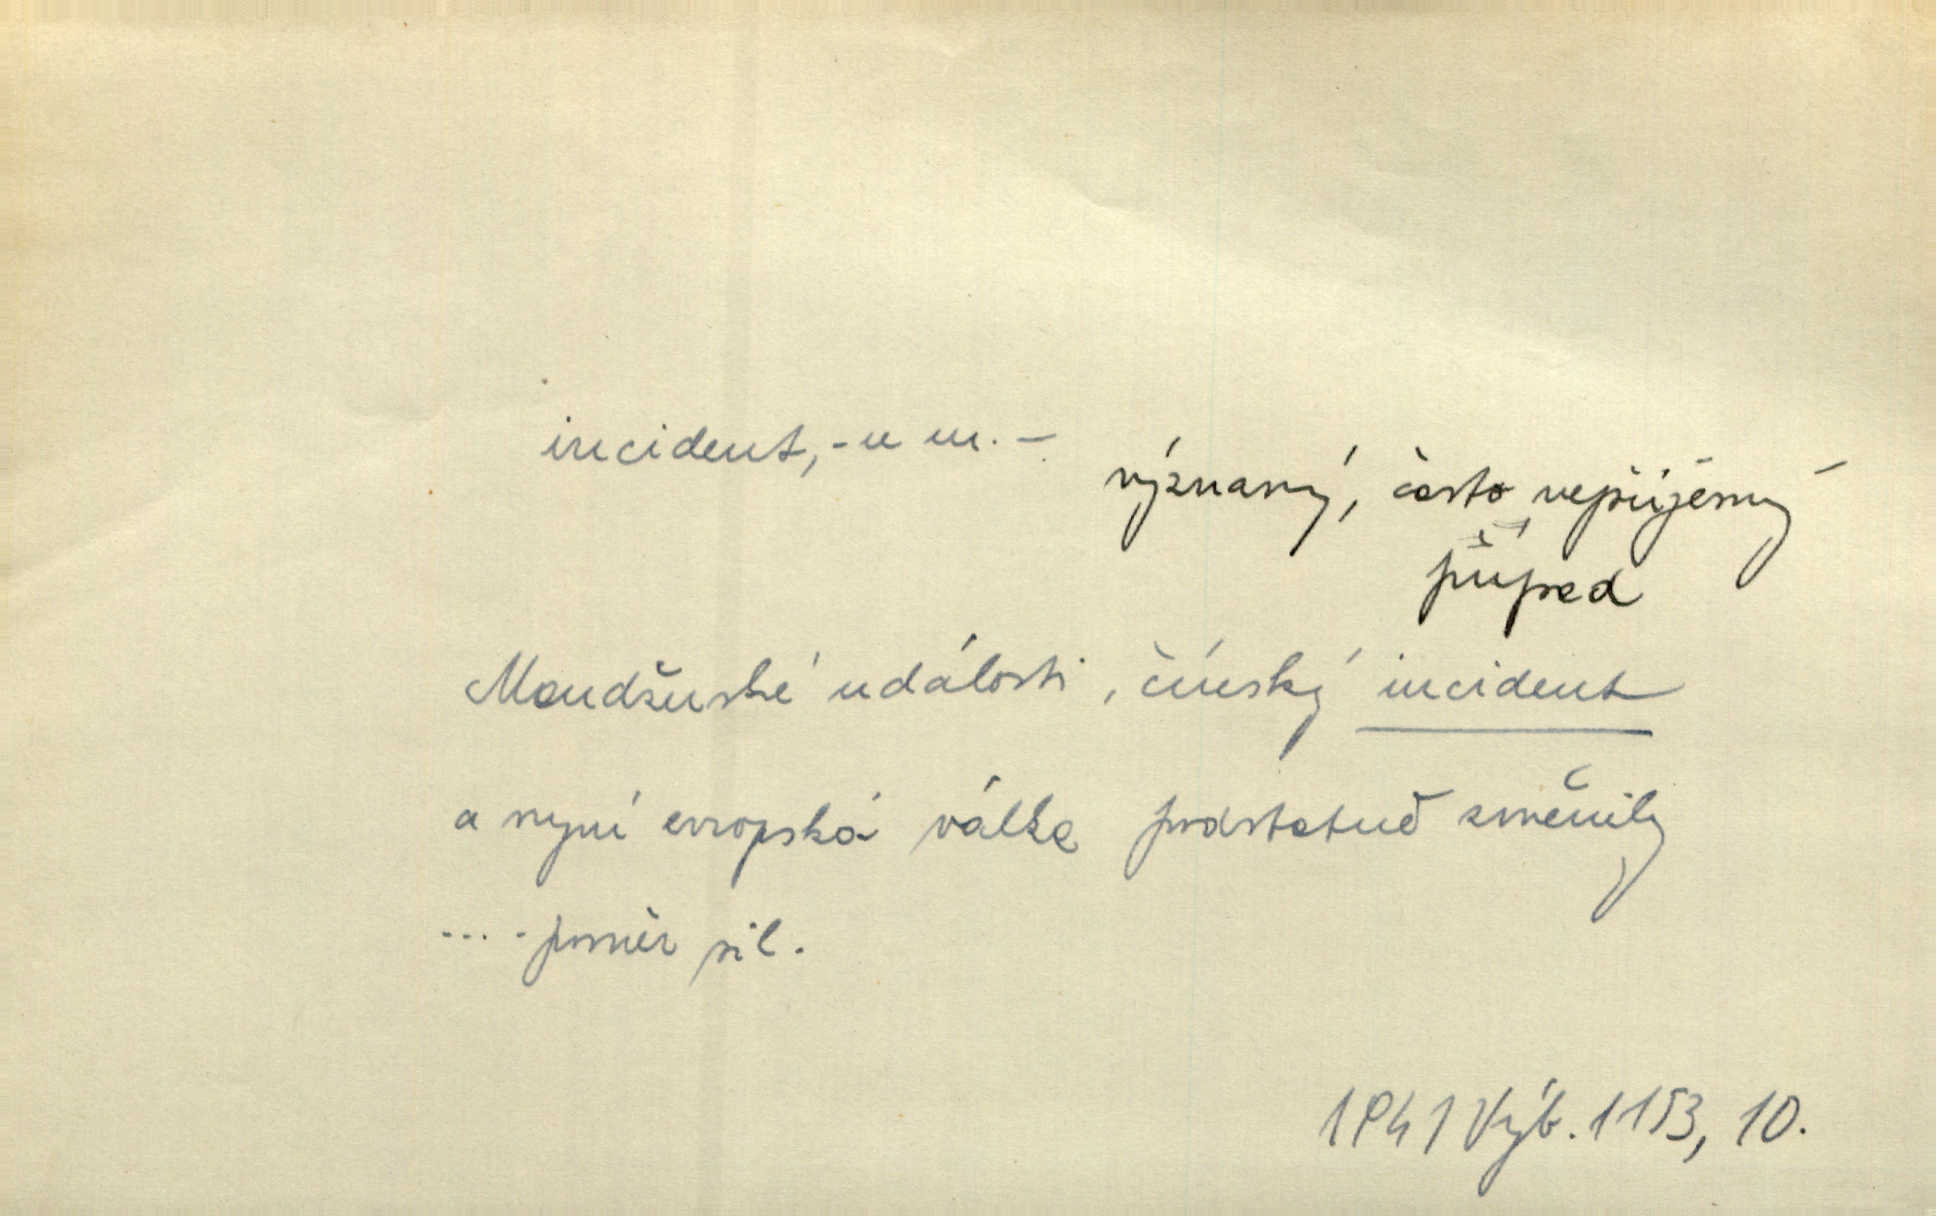 incident, -u m. –
význaný, často nepříjemný
případ
Mandžuské události, čínský incident
a nyní evropská válka podstatně změnily
.... poměr sil.
1941 Výb. 1153, 10.